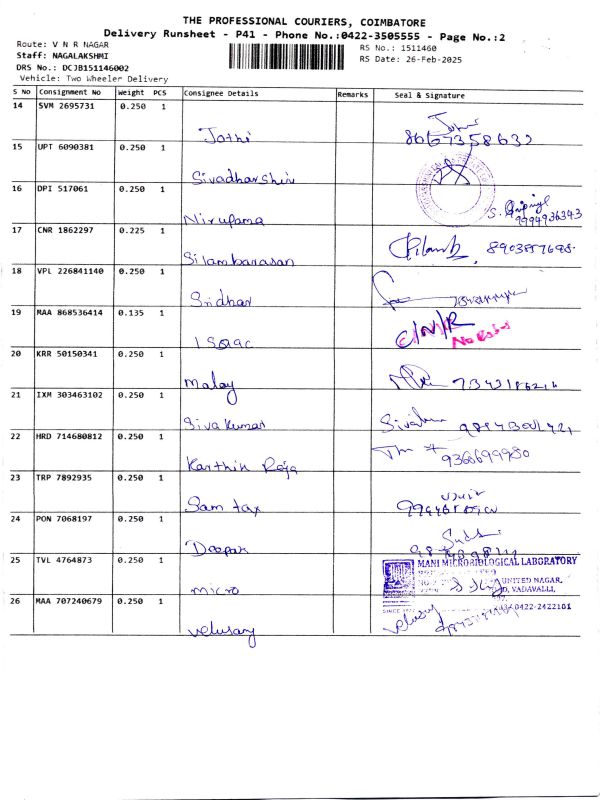 THE PROFESSIONAL COURIERS, COIMBATORE
Delivery Runsheet - P41 - Phone No.:0422-3505555 - Page No.:2
Route: V N R NAGAR
RS No.: 1511460
Staff: NAGALAKSHMI
RS Date: 26-Feb-2025
DRS No.: DCJB151146002
Vehicle: Two Wheeler Delivery
S No Consignment No Weight PCS Consignee Details Remarks Seal & Signature
14 SVM 2695731 0.250 1
Jothi 8667358632
15 UPT 6090381 0.250 1
Sivadharshini
16 DPI 517061 0.250 1
Nirupama 9994936343
17 CNR 1862297 0.225 1
Silambarasan
18 VPL 226841140 0.250 1
Sridhar
19 MAA 868536414 0.135 1
Isaac C/N/R
20 KRR 50150341 0.250 1
Malay
21 IXM 303463102 0.250 1
Siva Kumar
22 HRD 714680812 0.250 1
Karthik Roja 9366699980
23 TRP 7892935 0.250 1
Sam tax
24 PON 7068197 0.250 1
Deepak
25 TVL 4764873 0.250 1
MANI MICROBIOLOGICAL LABORATORY
UNITED NAGAR,
VADAVALLI,
micro
0422-2422101
26 MAA 707240679 0.250 1
velusamy